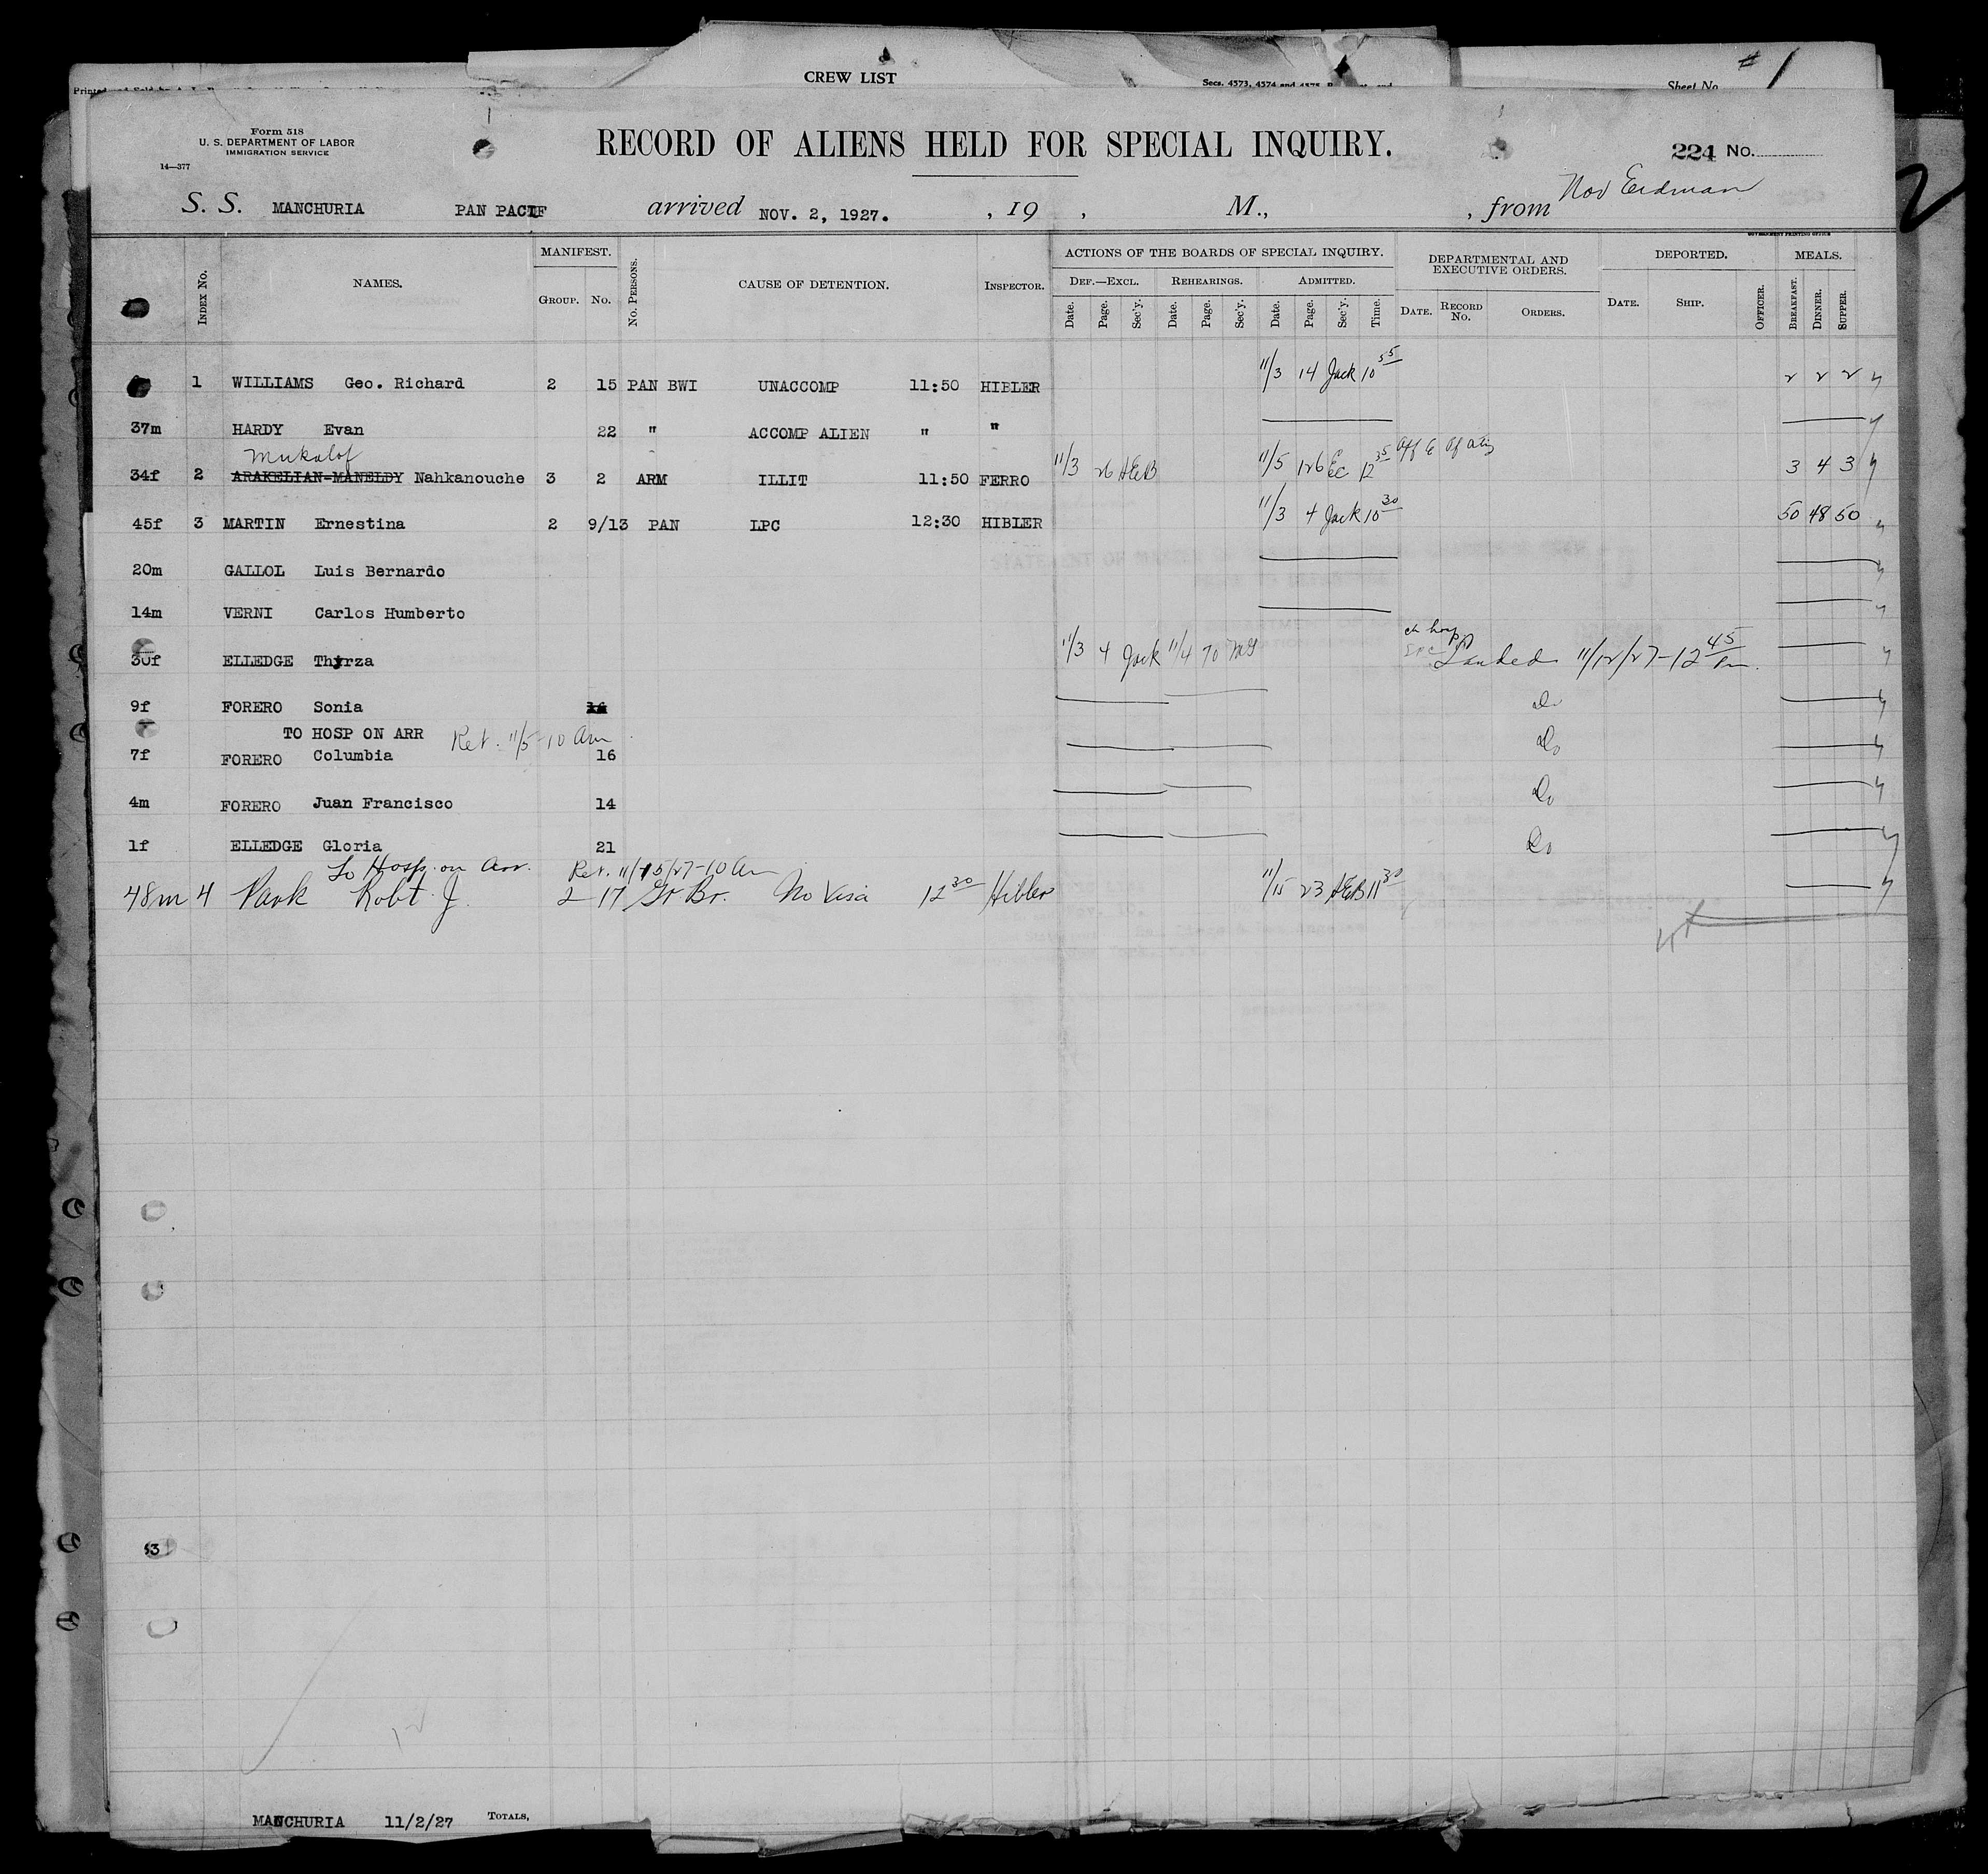 CREW LIST
Secs. 4573, 4574 and 4575
Sheet No. # 1
Form 518
U. S. DEPARTMENT OF LABOR
IMMIGRATION SERVICE
14—377
RECORD OF ALIENS HELD FOR SPECIAL INQUIRY.
224 No.
2
S. S. MANCHURIA PAN PACIF arrived NOV. 2, 1927. , 19 , M., , from
GOVERNMENT PRINTING OFFICE
Index No. NAMES. MANIFEST. Group. No. No. Persons. CAUSE OF DETENTION. Inspector. ACTIONS OF THE BOARDS OF SPECIAL INQUIRY. Def.—Excl. Date. Page. Sec'y. Rehearings. Date. Page. Sec'y. Admitted. Date. Page. Sec'y. Time. DEPARTMENTAL AND EXECUTIVE ORDERS. Date. Record No. Orders. DEPORTED. Date. Ship. Officer. MEALS. Breakfast. Dinner. Supper.
1 WILLIAMS Geo. Richard 2 15 PAN BWI UNACCOMP 11:50 HIBLER 11/3 14 Jack 10 55 2 2 2
37m HARDY Evan 22 " ACCOMP ALIEN " "
Mukalof
34f 2 ARAKELIAN-MANELDY Nahkanouche 3 2 ARM ILLIT 11:50 FERRO 11/3 26 HEB 11/5 126 EC 12 35 3 4 3
45f 3 MARTIN Ernestina 2 9/13 PAN LPC 12:30 HIBLER 11/3 4 Jack 10 30 50 48 50
20m GALLOL Luis Bernardo
14m VERNI Carlos Humberto
30f ELLEDGE Thyrza 11/3 4 Jack 11/4 70 Landed 11/12/27-12 45 Pm.
9f FORERO Sonia Do
TO HOSP ON ARR Ret. 11/5-10 Am
7f FORERO Columbia 16 Do
4m FORERO Juan Francisco 14 Do
1f ELLEDGE Gloria 21 Do
To Hosp. on Arr. Ret. 11/15/27-10 Am
48m 4 Park Robt. J. 2 17 Gr Br. No Visa 12 30 Hibler 11/15 23 HEB 11 30
53
MANCHURIA 11/2/27 Totals,